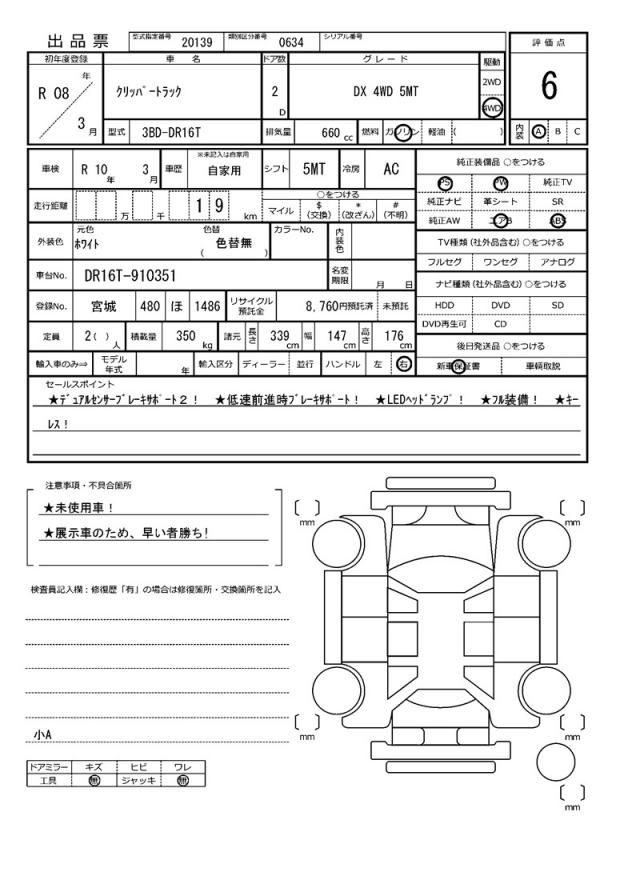 出品票 型式指定番号 20139 類別区分番号 0634 シリアル番号
評価点
6
内装 A B C
初年度登録 車名 ドア数 グレード 駆動
R 08 年 3 月 クリッパートラック 2 D DX 4WD 5MT 2WD 4WD
型式 3BD-DR16T 排気量 660 cc 燃料 ガソリン 軽油 ( )
車検 R 10 年 3 月 車歴 ※未記入は自家用 自家用 シフト 5MT 冷房 AC
走行距離 万 千 1 9 km ○をつける マイル $ (交換) * (改ざん) # (不明)
外装色 元色 ホワイト 色替 色替無 ( ) カラーNo. 内装色
車台No. DR16T-910351 名変期限 月 日
登録No. 宮城 480 ほ 1486 リサイクル預託金 8,760円預託済 未預託
定員 2( ) 人 積載量 350 kg 諸元 長さ 339 cm 幅 147 cm 高さ 176 cm
輸入車のみ⇒ モデル年式 年 輸入区分 ディーラー 並行 ハンドル 左 右
純正装備品 ○をつける
PS PW 純正TV
純正ナビ 革シート SR
純正AW エアB ABS
TV種類 (社外品含む) ○をつける
フルセグ ワンセグ アナログ
ナビ種類 (社外品含む) ○をつける
HDD DVD SD
DVD再生可 CD
後日発送品 ○をつける
新車保証書 車輌取説
セールスポイント
★デュアルセンサーブレーキサポート2! ★低速前進時ブレーキサポート! ★LEDヘッドランプ! ★フル装備! ★キー
レス!
注意事項・不具合箇所
★未使用車!
★展示車のため、早い者勝ち!
検査員記入欄:修復歴「有」の場合は修復箇所・交換箇所を記入
小A
ドアミラー キズ ヒビ ワレ
工具 無 ジャッキ 無
mm
mm
mm
mm
mm